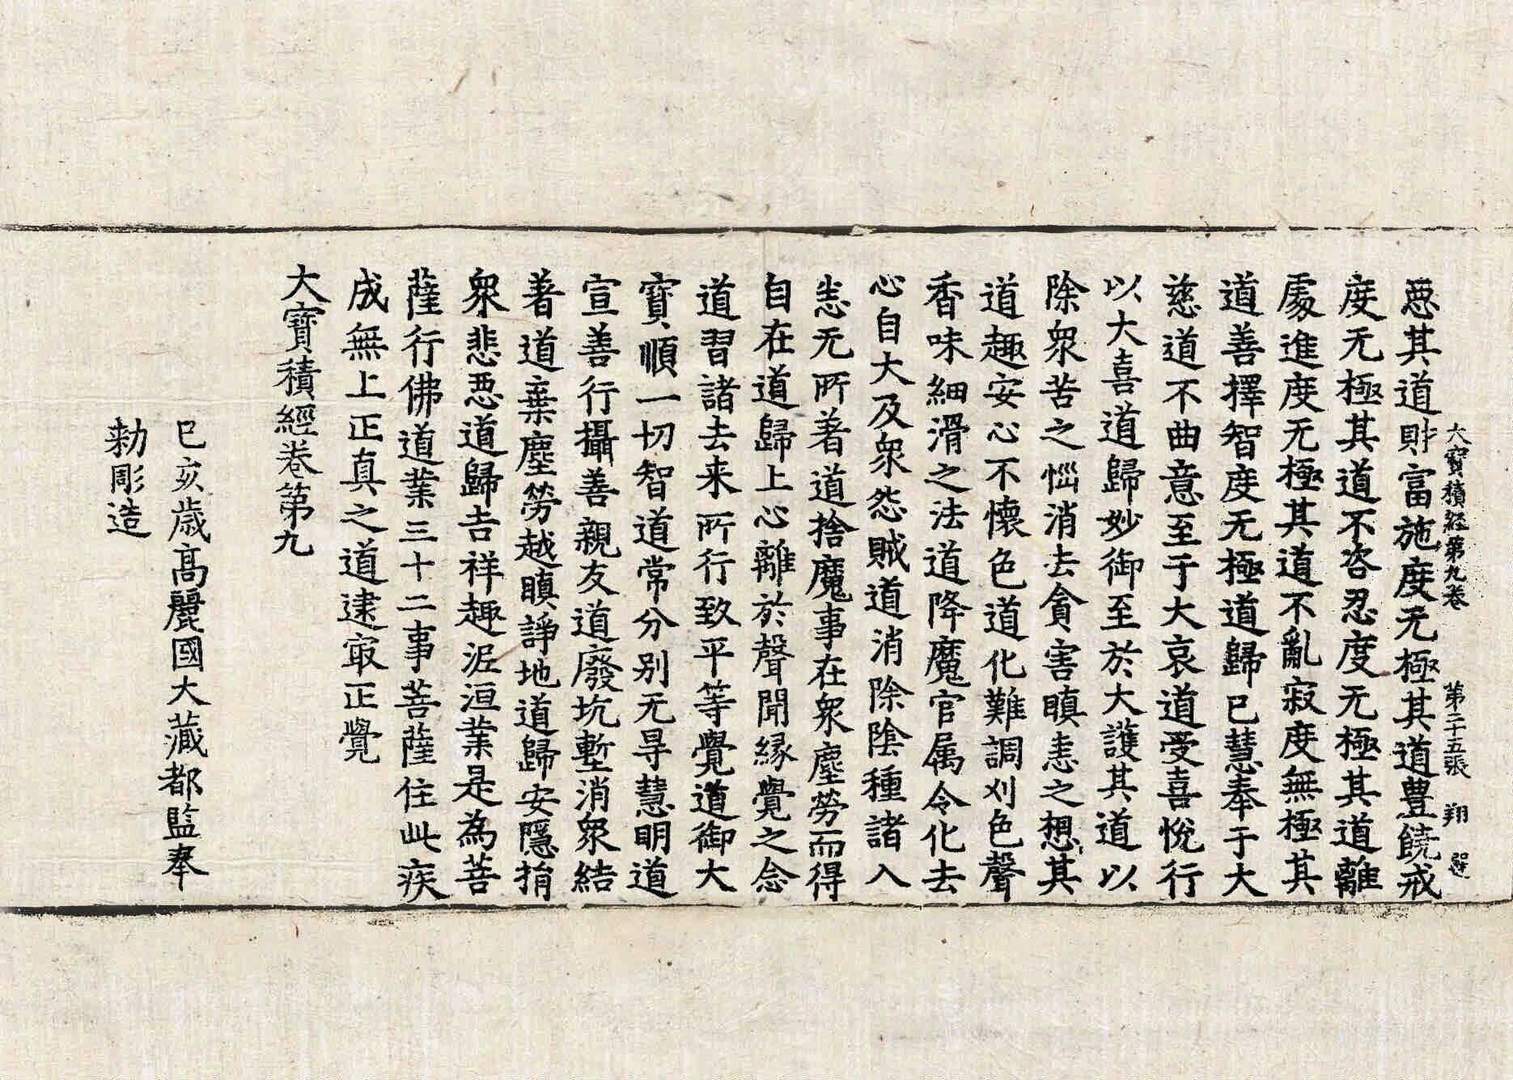 大寶積經第九卷 第二十五張 翔
惡其道財富施度无極其道豊饒戒
度无極其道不恣忍度无極其道離
處進度无極其道不亂寂度無極其
道善擇智度无極道歸已慧奉于大
慈道不曲意至于大哀道受喜悅行
以大喜道歸妙御至於大護其道以
除衆苦之惱消去貪害瞋恚之想其
道趣安心不懷色道化難調刈色聲
香味細滑之法道降魔官属令化去
心自大及衆怨賊道消除陰種諸入
恙无所著道捨魔事在衆塵勞而得
自在道歸上心離於聲聞緣覺之念
道習諸去来所行致平等覺道御大
寶順一切智道常分别无㝵慧明道
宣善行攝善親友道廢坑塹消衆結
著道棄塵勞越瞋諍地道歸安隱捐
衆悲惡道歸吉祥趣泥洹業是為菩
薩行佛道業三十二事菩薩住此疾
成無上正真之道逮㝡正覺
大寶積經卷第九
己亥歲高麗國大藏都監奉
勅彫造